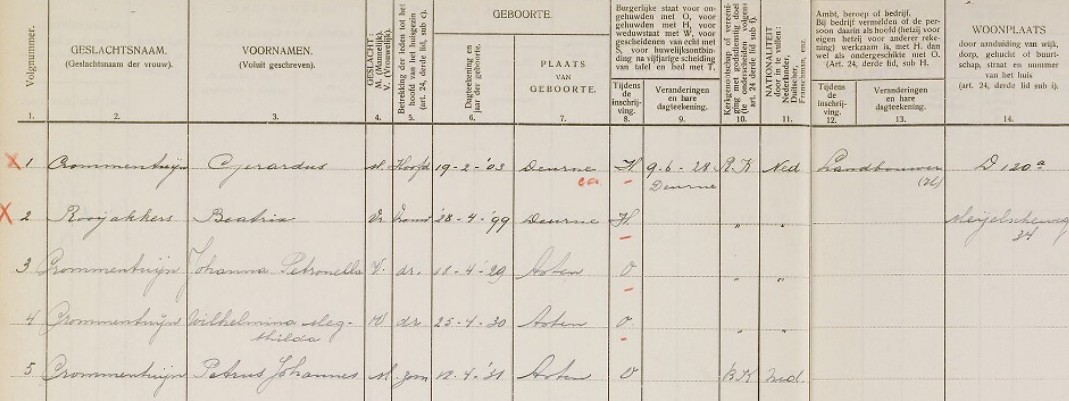 Volgnummer.
1.
GESLACHTSNAAM.
(Geslachtsnaam der vrouw).
2.
VOORNAMEN.
(Voluit geschreven).
3.
GESLACHT:
M. (Mannelijk).
V. (Vrouwelijk).
4.
Betrekking der leden tot het
hoofd van het huisgezin
(art. 24, derde lid, sub c).
5.
GEBOORTE.
Dagteekening en
jaar der geboorte.
6.
PLAATS
VAN
GEBOORTE.
7.
Burgerlijke staat voor on-
gehuwden met O, voor
gehuwden met H, voor
weduwstaat met W, voor
gescheidenen van echt met
S, voor huwelijksontbin-
ding na vijfjarige scheiding
van tafel en bed met T.
Tijdens
de
inschrij-
ving.
8.
Veranderingen
en hare
dagteekening.
9.
Kerkgenootschap of vereeni-
ging met godsdienstig doel
(te onderscheiden volgens
art. 24 derde lid sub f).
10.
NATIONALITEIT
door in te vullen:
Nederlander,
Duitscher,
Franschman, enz.
11.
Ambt, beroep of bedrijf.
Bij bedrijf vermelden of de per-
soon daarin als hoofd (hetzij voor
eigen hetzij voor anderer reke-
ning) werkzaam is, met H. dan
wel als ondergeschikte met O.
(Art. 24, derde lid, sub H.
Tijdens
de
inschrij-
ving.
12.
Veranderingen
en hare
dagteekening.
13.
WOONPLAATS
door aanduiding van wijk,
dorp, gehucht of buurt-
schap, straat en nummer
van het huis
(art. 24, derde lid sub i).
14.
X 1 Crommentuijn Gerardus M. Hoofd 19-2-'03 Deurne H 9-6-28 R.K Ned Landbouwer D 120a
ca Deurne (H)
X 2 Rooijakkers Beatrix Vr Vrouw 28-4-'99 Deurne H. " " Meijelscheweg
34
3 Crommentuijn Johanna Petronella V. dr. 18-4-'29 Asten O " "
4 Crommentuijn Wilhelmina Meg- V dr 25-4-30 Asten O " "
thilda
5 Crommentuijn Petrus Johannes M. zoon 12-4-'31 Asten O R.K Ned.